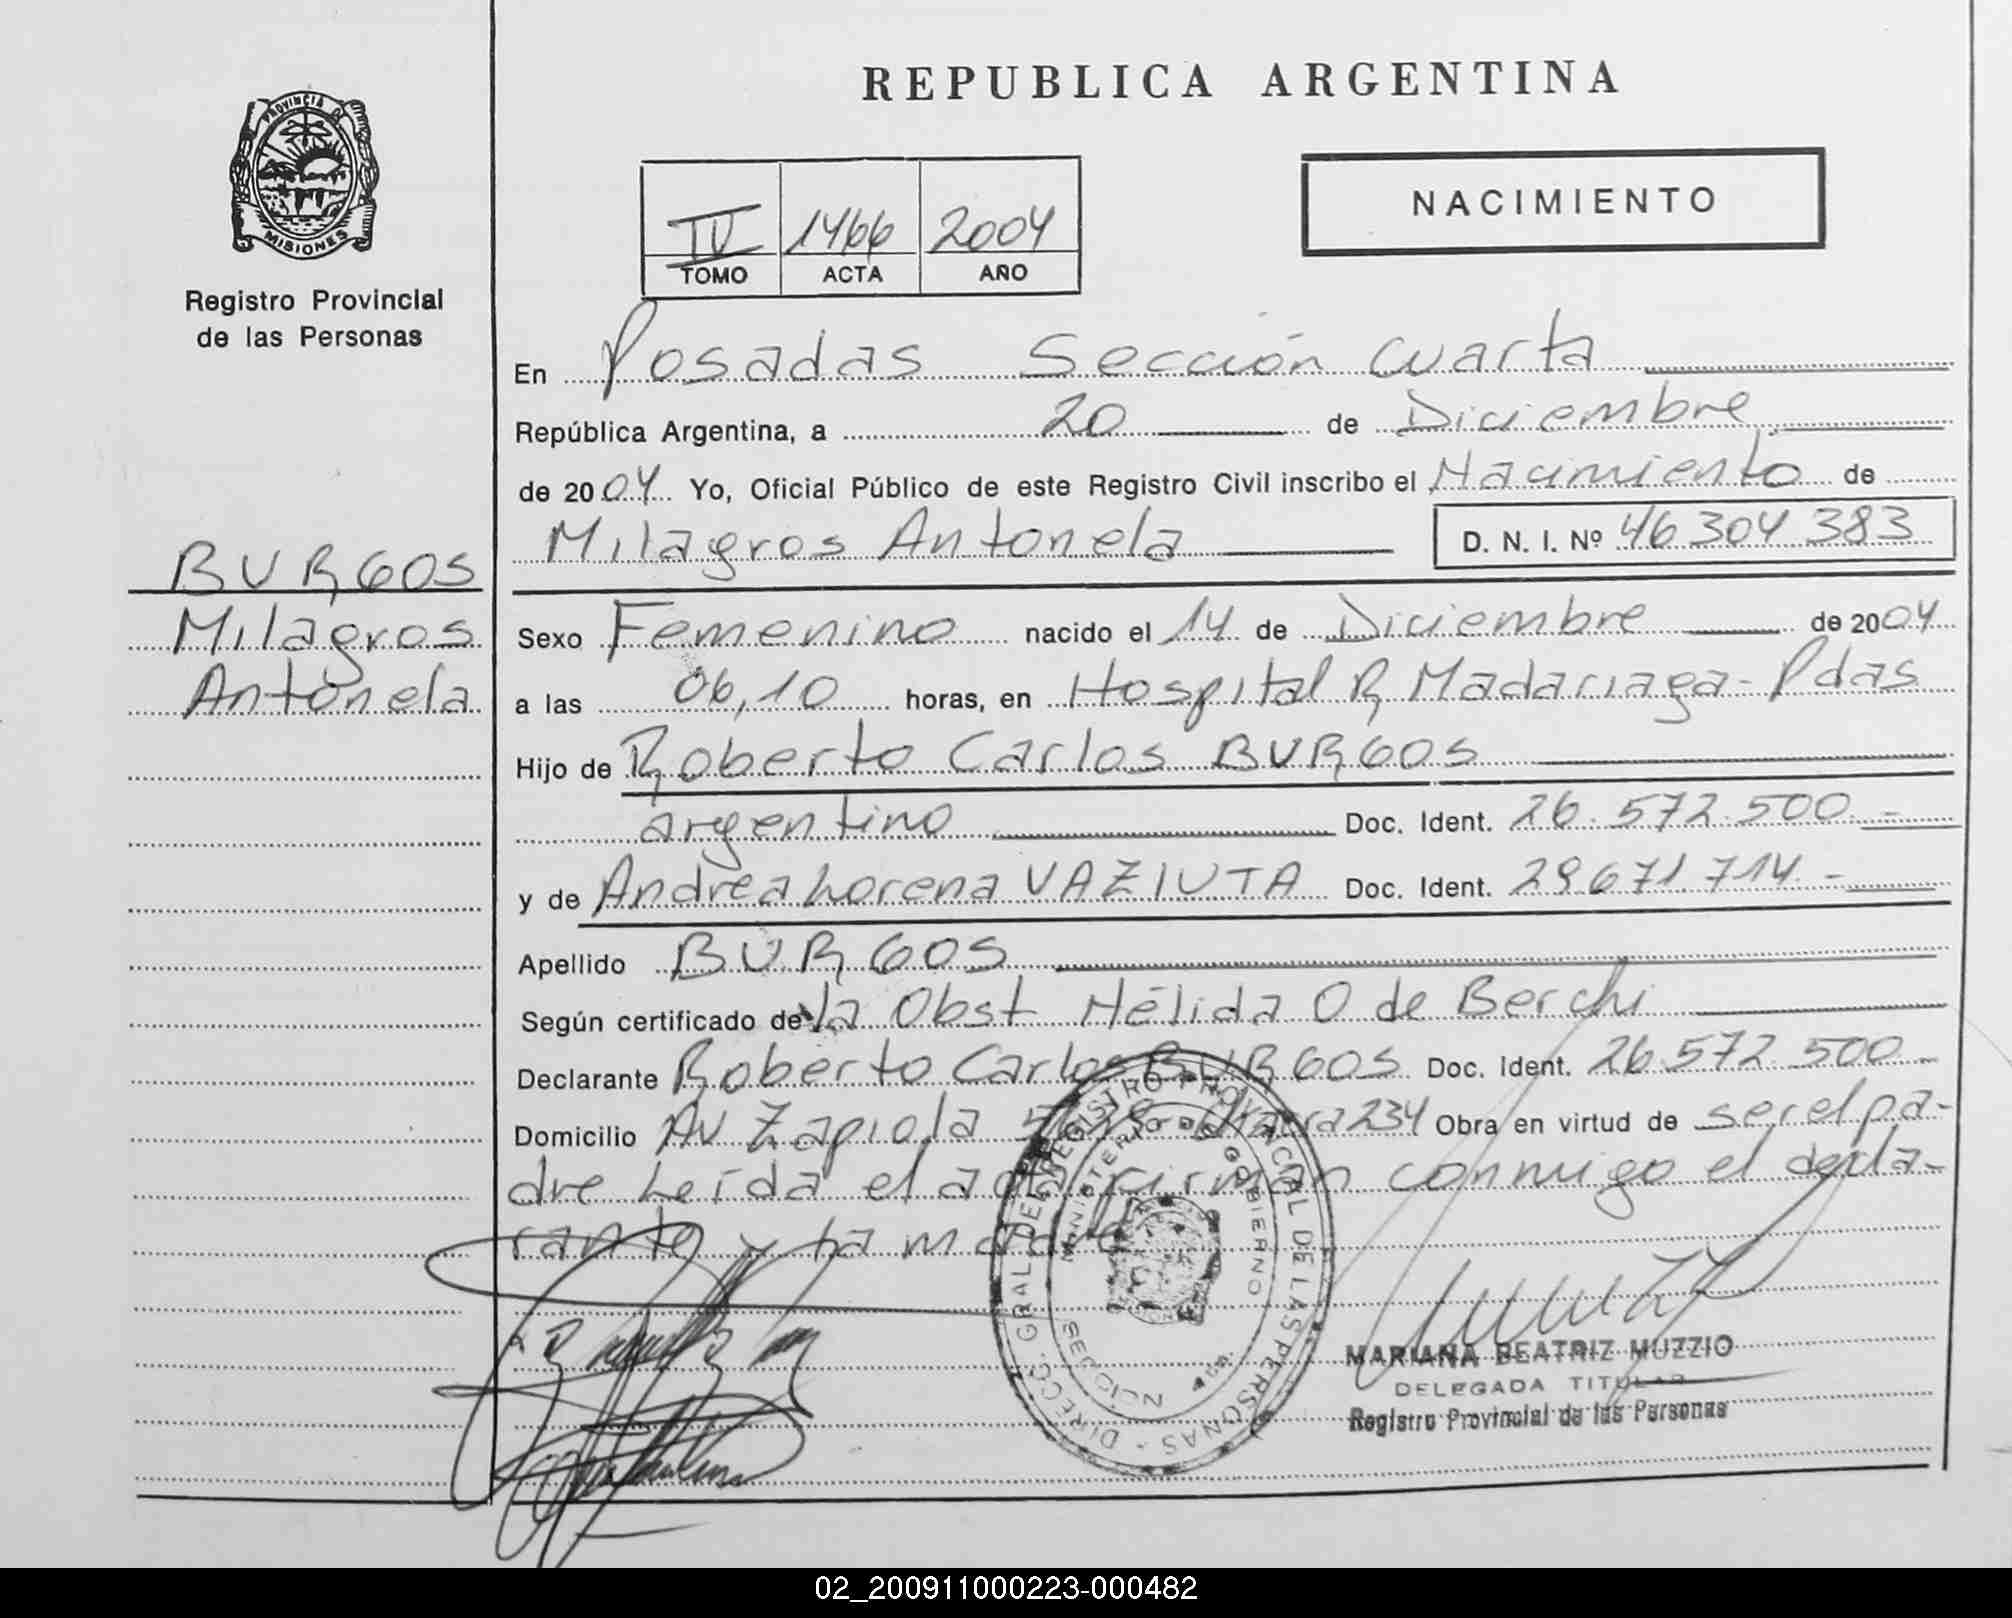 REPUBLICA ARGENTINA
PROVINCIA D
MISIONES
Registro Provincial
de las Personas
NACIMIENTO
IV 1466 2004
TOMO ACTA AÑO
En Posadas Sección Cuarta
República Argentina, a 20 de Diciembre
de 2004 Yo, Oficial Público de este Registro Civil inscribo el Nacimiento de
Milagros Antonela D. N. I. Nº 46 304 383
BURGOS
Milagros
Antonela
Sexo Femenino nacido el 14 de Diciembre de 2004
a las 06,10 horas, en Hospital R Madariaga - Pdas
Hijo de Roberto Carlos BURGOS
argentino Doc. Ident. 26.572.500.-
y de Andrea Lorena VAZIUTA Doc. Ident. 29.671.714.-
Apellido BURGOS
Según certificado de la Obst Nélida O de Berchi
Declarante Roberto Carlos BURGOS Doc. Ident. 26.572.500.-
Domicilio Av Zapiola 234 Obra en virtud de ser el pa-
dre Leída el acta firman conmigo el decla-
rante y la madre
DIRECC. GRAL DEL REGISTRO PROVINCIAL DE LAS PERSONAS
MINISTERIO DE GOBIERNO
SECCION 4ta.
MARIANA BEATRIZ MUZZIO
DELEGADA TITULAR
Registro Provincial de las Personas
02_200911000223-000482